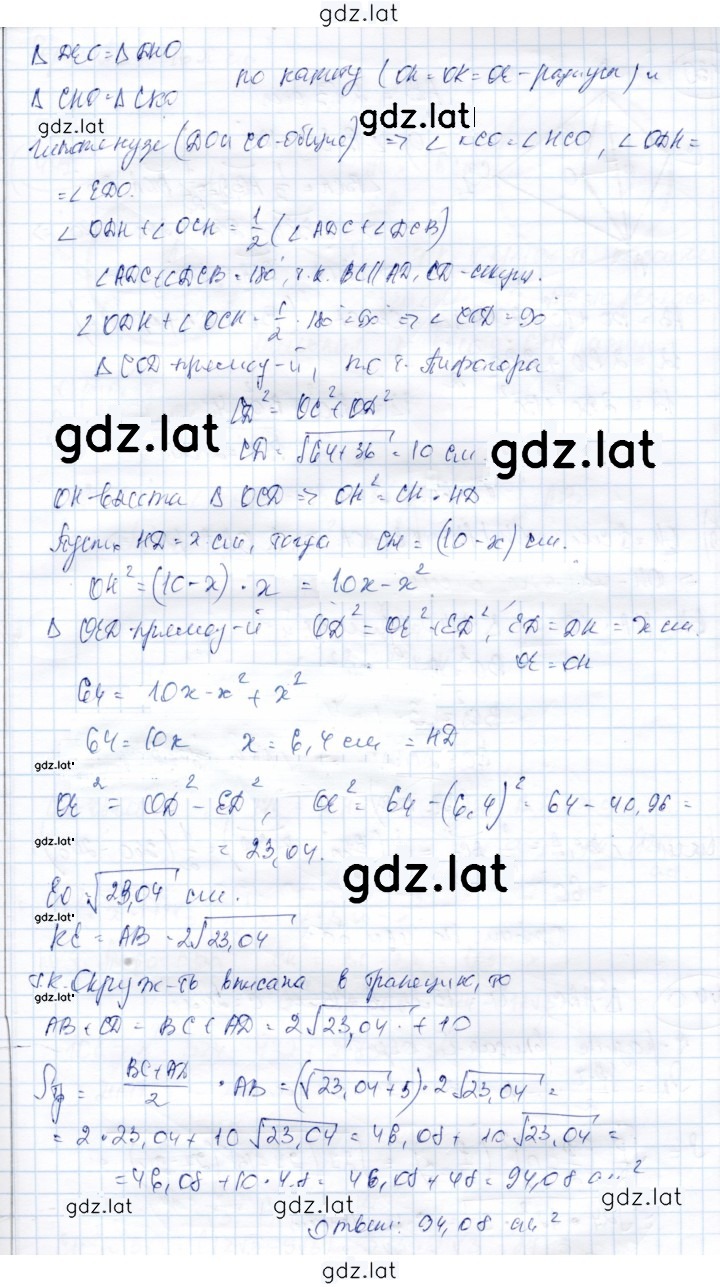 gdz.lat
Δ DEO = Δ DHO
по катету (OH = OK = OE - радиусы) и
Δ CHO = Δ CKO
gdz.lat
gdz.lat
гипотенузе (DO и CO - общие) ⇒ ∠KCO = ∠HCO, ∠ODH =
= ∠EDO.
∠ODH + ∠OCH = 1/2 (∠ADC + ∠DCB)
∠ADC + ∠DCB = 180°, т.к. BC || AD, CD - секущ.
∠ODH + ∠OCH = 1/2 · 180° = 90° ⇒ ∠COD = 90°
Δ COD - прямоу-й, по т. Пифагора
CD² = OC² + OD²
gdz.lat
CD = √64+36 = 10 см.
gdz.lat
OH - высота Δ OCD ⇒ OH² = CH · HD
Пусть HD = x см, тогда CH = (10 - x) см.
OH² = (10 - x) · x = 10x - x²
Δ OED - прямоу-й OD² = OE² + ED², ED = DH = x см.
OE = OH
64 = 10x - x² + x²
64 = 10x x = 6,4 см = HD
gdz.lat
OE² = OD² - ED², OE² = 64 - (6,4)² = 64 - 40,96 =
gdz.lat
= 23,04.
gdz.lat
EO = √23,04 см.
gdz.lat
KE = AB = 2√23,04
Т.к. Окруж-ть вписана в трапецию, то
gdz.lat
AB + CD = BC + AD = 2√23,04 + 10
Sтр = BC+AD/2 · AB = (√23,04 + 5) · 2√23,04 =
= 2 · 23,04 + 10√23,04 = 46,08 + 10√23,04 =
= 46,08 + 10 · 4,8 = 46,08 + 48 = 94,08 см²
gdz.lat
gdz.lat
gdz.lat
Ответ: 94,08 см²
gdz.lat